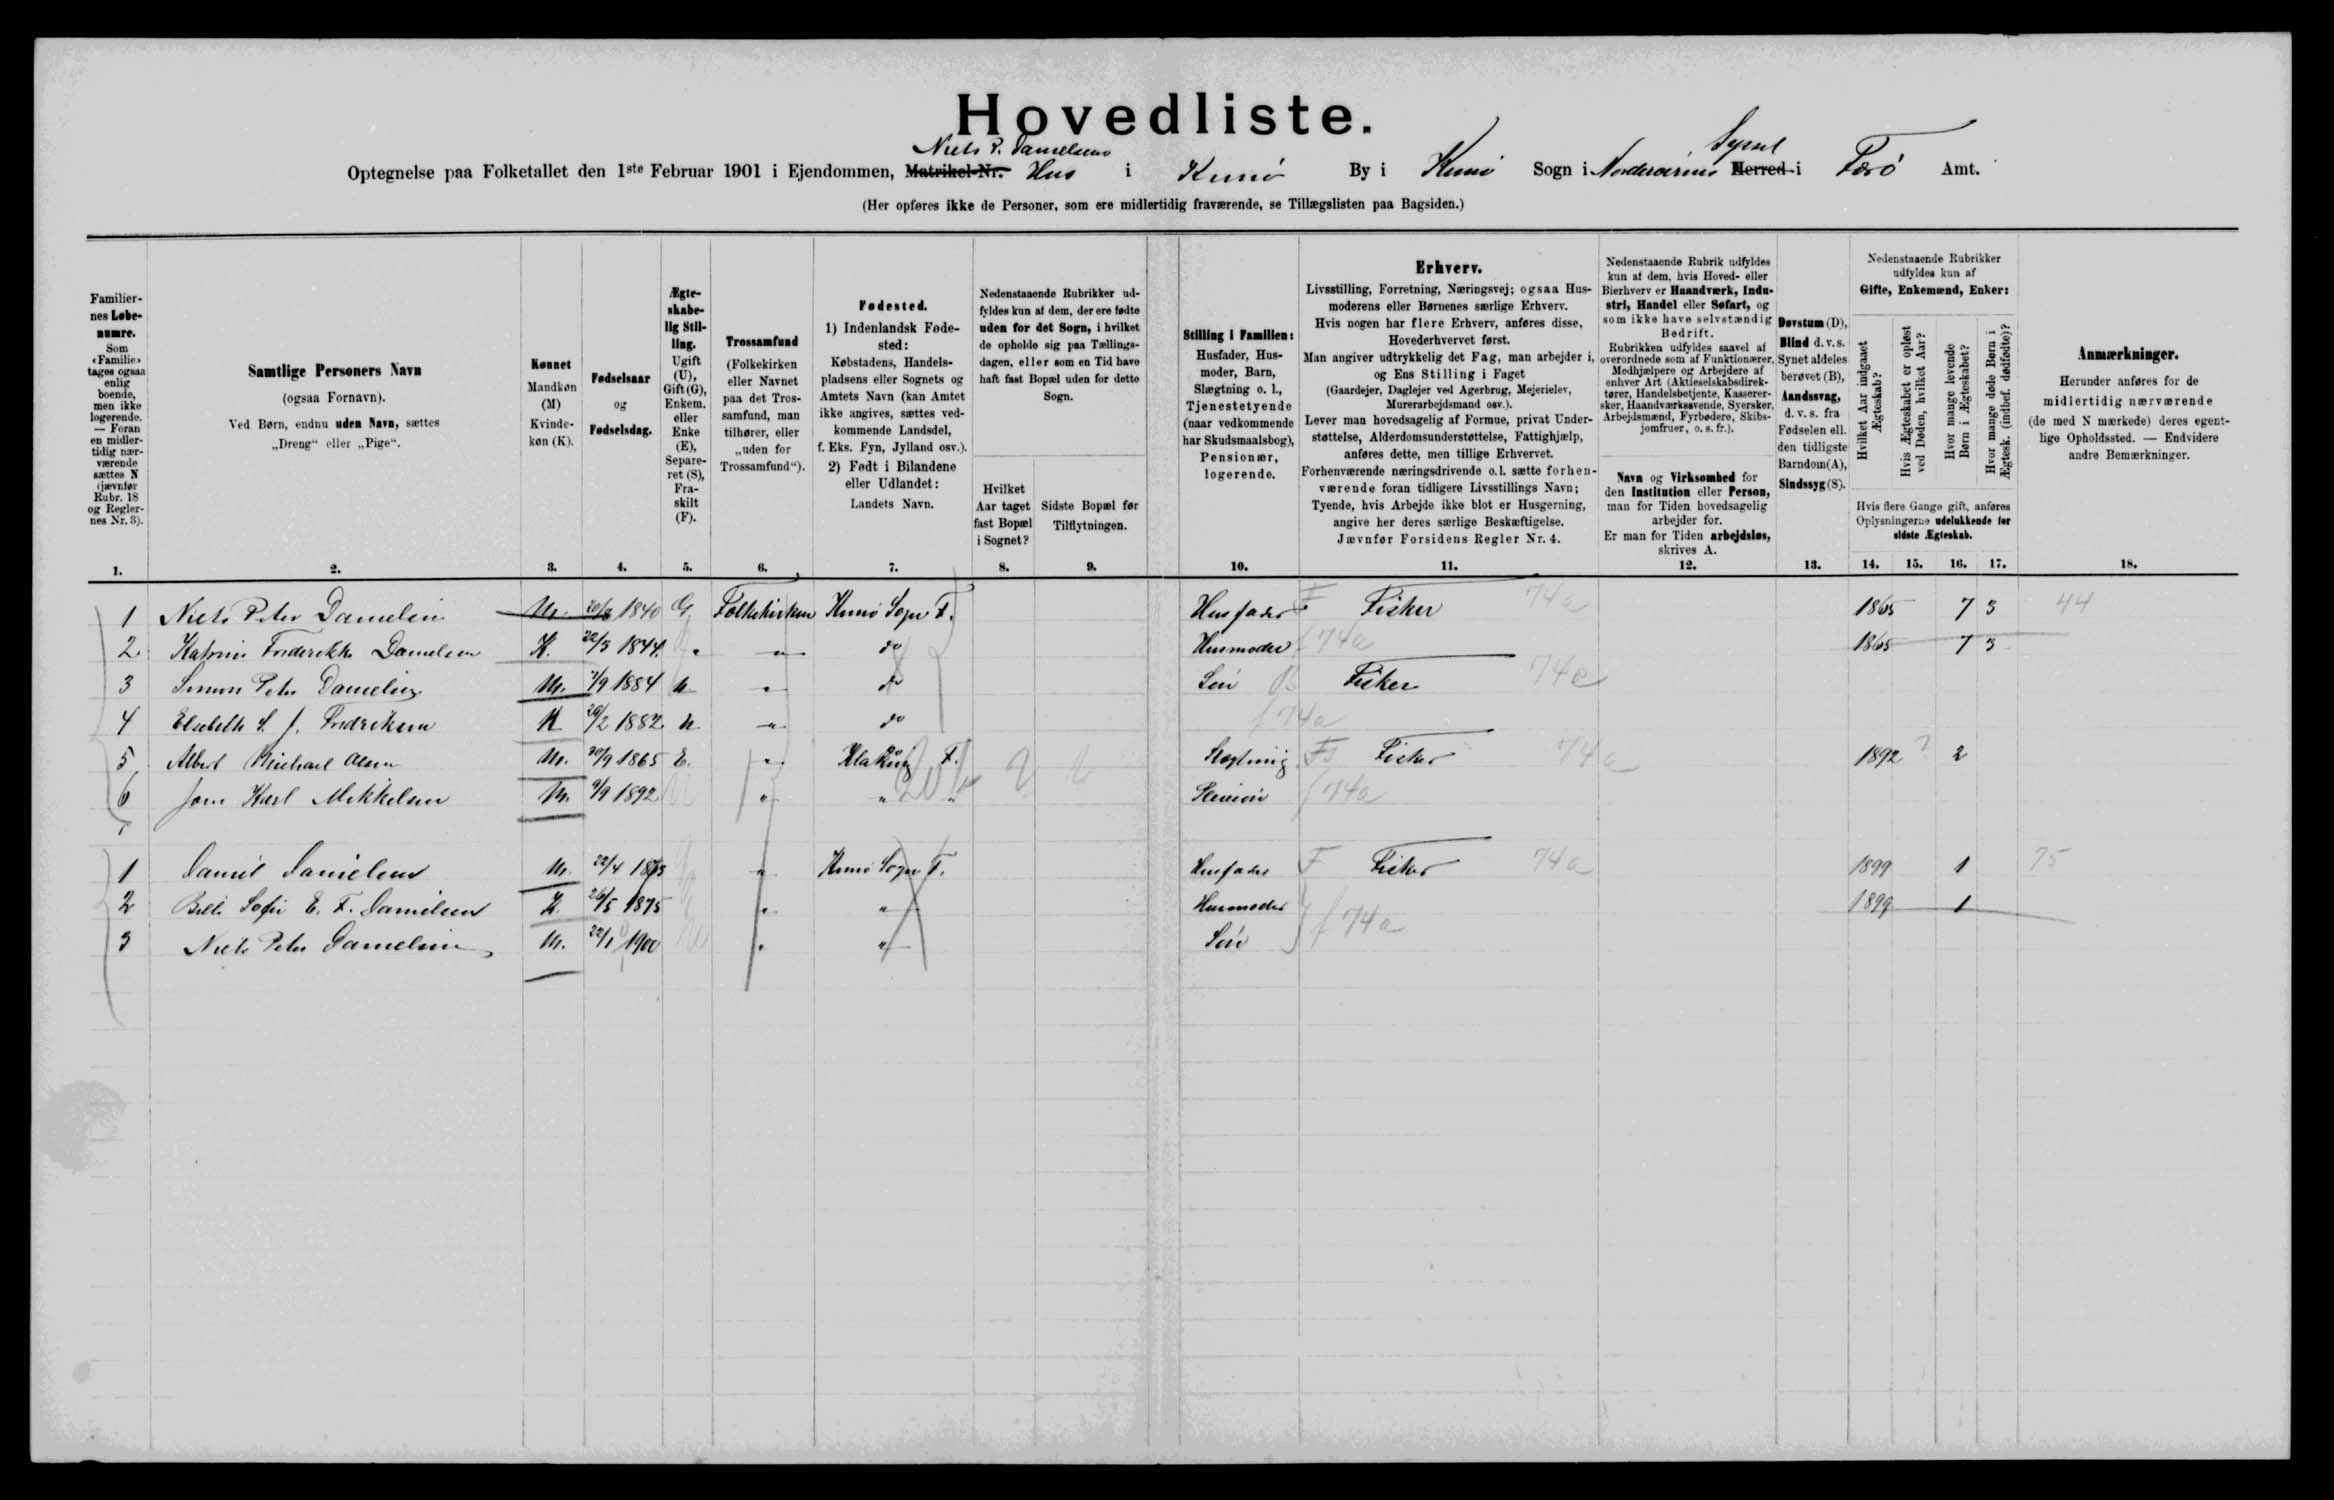 Hovedliste.
Niels P. Danielsens
Syssel
Optegnelse paa Folketallet den 1ste Februar 1901 i Ejendommen, Matrikel-Nr. Hus i Kunø By i Kunø Sogn i Norderøernes Herred i Færø Amt.
(Her opføres ikke de Personer, som ere midlertidig fraværende, se Tillægslisten paa Bagsiden.)
Familiernes Løbenumre.
Som «Familie» tages ogsaa enlig boende, men ikke logerende. — Foran en midlertidig nærværende sættes N (jævnfør Rubr. 18 og Reglernes Nr. 3).
Samtlige Personers Navn
(ogsaa Fornavn).
Ved Børn, endnu uden Navn, sættes „Dreng“ eller „Pige“.
Kønnet
Mandkøn (M)
Kvindekøn (K).
Fødselsaar
og
Fødselsdag.
Ægteskabelig Stilling.
Ugift (U), Gift (G), Enkem. eller Enke (E), Separeret (S), Fraskilt (F).
Trossamfund
(Folkekirken eller Navnet paa det Trossamfund, man tilhører, eller „uden for Trossamfund“).
Fødested.
1) Indenlandsk Fødested:
Købstadens, Handelspladsens eller Sognets og Amtets Navn (kan Amtet ikke angives, sættes vedkommende Landsdel, f. Eks. Fyn, Jylland osv.).
2) Født i Bilandene eller Udlandet:
Landets Navn.
Nedenstaaende Rubrikker udfyldes kun af dem, der ere fødte uden for det Sogn, i hvilket de opholde sig paa Tællingsdagen, eller som en Tid have haft fast Bopæl uden for dette Sogn.
Hvilket Aar taget fast Bopæl i Sognet?
Sidste Bopæl før Tilflytningen.
Stilling i Familien:
Husfader, Husmoder, Barn, Slægtning o. l., Tjenestetyende (naar vedkommende har Skudsmaalsbog), Pensionær, logerende.
Erhverv.
Livsstilling, Forretning, Næringsvej; ogsaa Husmoderens eller Børnenes særlige Erhverv.
Hvis nogen har flere Erhverv, anføres disse, Hovederhvervet først.
Man angiver udtrykkelig det Fag, man arbejder i, og Ens Stilling i Faget
(Gaardejer, Daglejer ved Agerbrug, Mejerielev, Murerarbejdsmand osv.).
Lever man hovedsagelig af Formue, privat Understøttelse, Alderdomsunderstøttelse, Fattighjælp, anføres dette, men tillige Erhvervet.
Forhenværende næringsdrivende o. l. sætte forhenværende foran tidligere Livsstillings Navn;
Tyende, hvis Arbejde ikke blot er Husgerning, angive her deres særlige Beskæftigelse.
Jævnfør Forsidens Regler Nr. 4.
Nedenstaaende Rubrik udfyldes kun af dem, hvis Hoved- eller Bierhverv er Haandværk, Industri, Handel eller Søfart, og som ikke have selvstændig Bedrift.
Rubrikken udfyldes saavel af overordnede som af Funktionærer, Medhjælpere og Arbejdere af enhver Art (Aktieselskabsdirektører, Handelsbetjente, Kasserersker, Haandværkssvende, Syersker, Arbejdsmænd, Fyrbødere, Skibsjomfruer, o. s. fr.).
Navn og Virksomhed for den Institution eller Person, man for Tiden hovedsagelig arbejder for.
Er man for Tiden arbejdsløs, skrives A.
Døvstum (D), Blind d. v. s. Synet aldeles berøvet (B), Aandssvag, d. v. s. fra Fødselen ell. den tidligste Barndom (A), Sindssyg (S).
Nedenstaaende Rubrikker udfyldes kun af
Gifte, Enkemænd, Enker:
Hvilket Aar indgaaet Ægteskab?
Hvis Ægteskabet er opløst ved Døden, hvilket Aar?
Hvor mange levende Børn i Ægteskabet?
Hvor mange døde Børn i Ægtesk. (indbef. dødfødte)?
Hvis flere Gange gift, anføres Oplysningerne udelukkende for sidste Ægteskab.
Anmærkninger.
Herunder anføres for de midlertidig nærværende (de med N mærkede) deres egentlige Opholdssted. — Endvidere andre Bemærkninger.
1. 2. 3. 4. 5. 6. 7. 8. 9. 10. 11. 12. 13. 14. 15. 16. 17. 18.
1 Niels Peter Danielsen M. 1840 G Folkekirken Kunø Sogn F. Husfader F Fisker 74a 1865 7 3 44
2 Katrine Frederikke Danielsen K. 22/3 1844 " " do Husmoder 74a 1865 7 3
3 Simon Peter Danielsen M. 7/9 1884 u. " do Søn B Fisker 74a
4 Elsebeth S. J. Fredriksen K 29/2 1882 u. " do 74a
5 Albert Michael Olsen M. 30/9 1865 E. " Klaksvig F. ? ? Slægtning F Fisker 74a 1892 ? 2
6 Jens Karl Mikkelsen M. 9/9 1892 " " " 74a
1 Daniel Danielsen M. 22/4 1873 " Kunø Sogn F. Husfader F Fisker 74a 1899 1 75
2 Sofie E. F. Danielsen K. 26/5 1875 " " Husmoder 1899 1
3 Niels Peter Danielsen M. 22/1 1900 " " Søn 74a